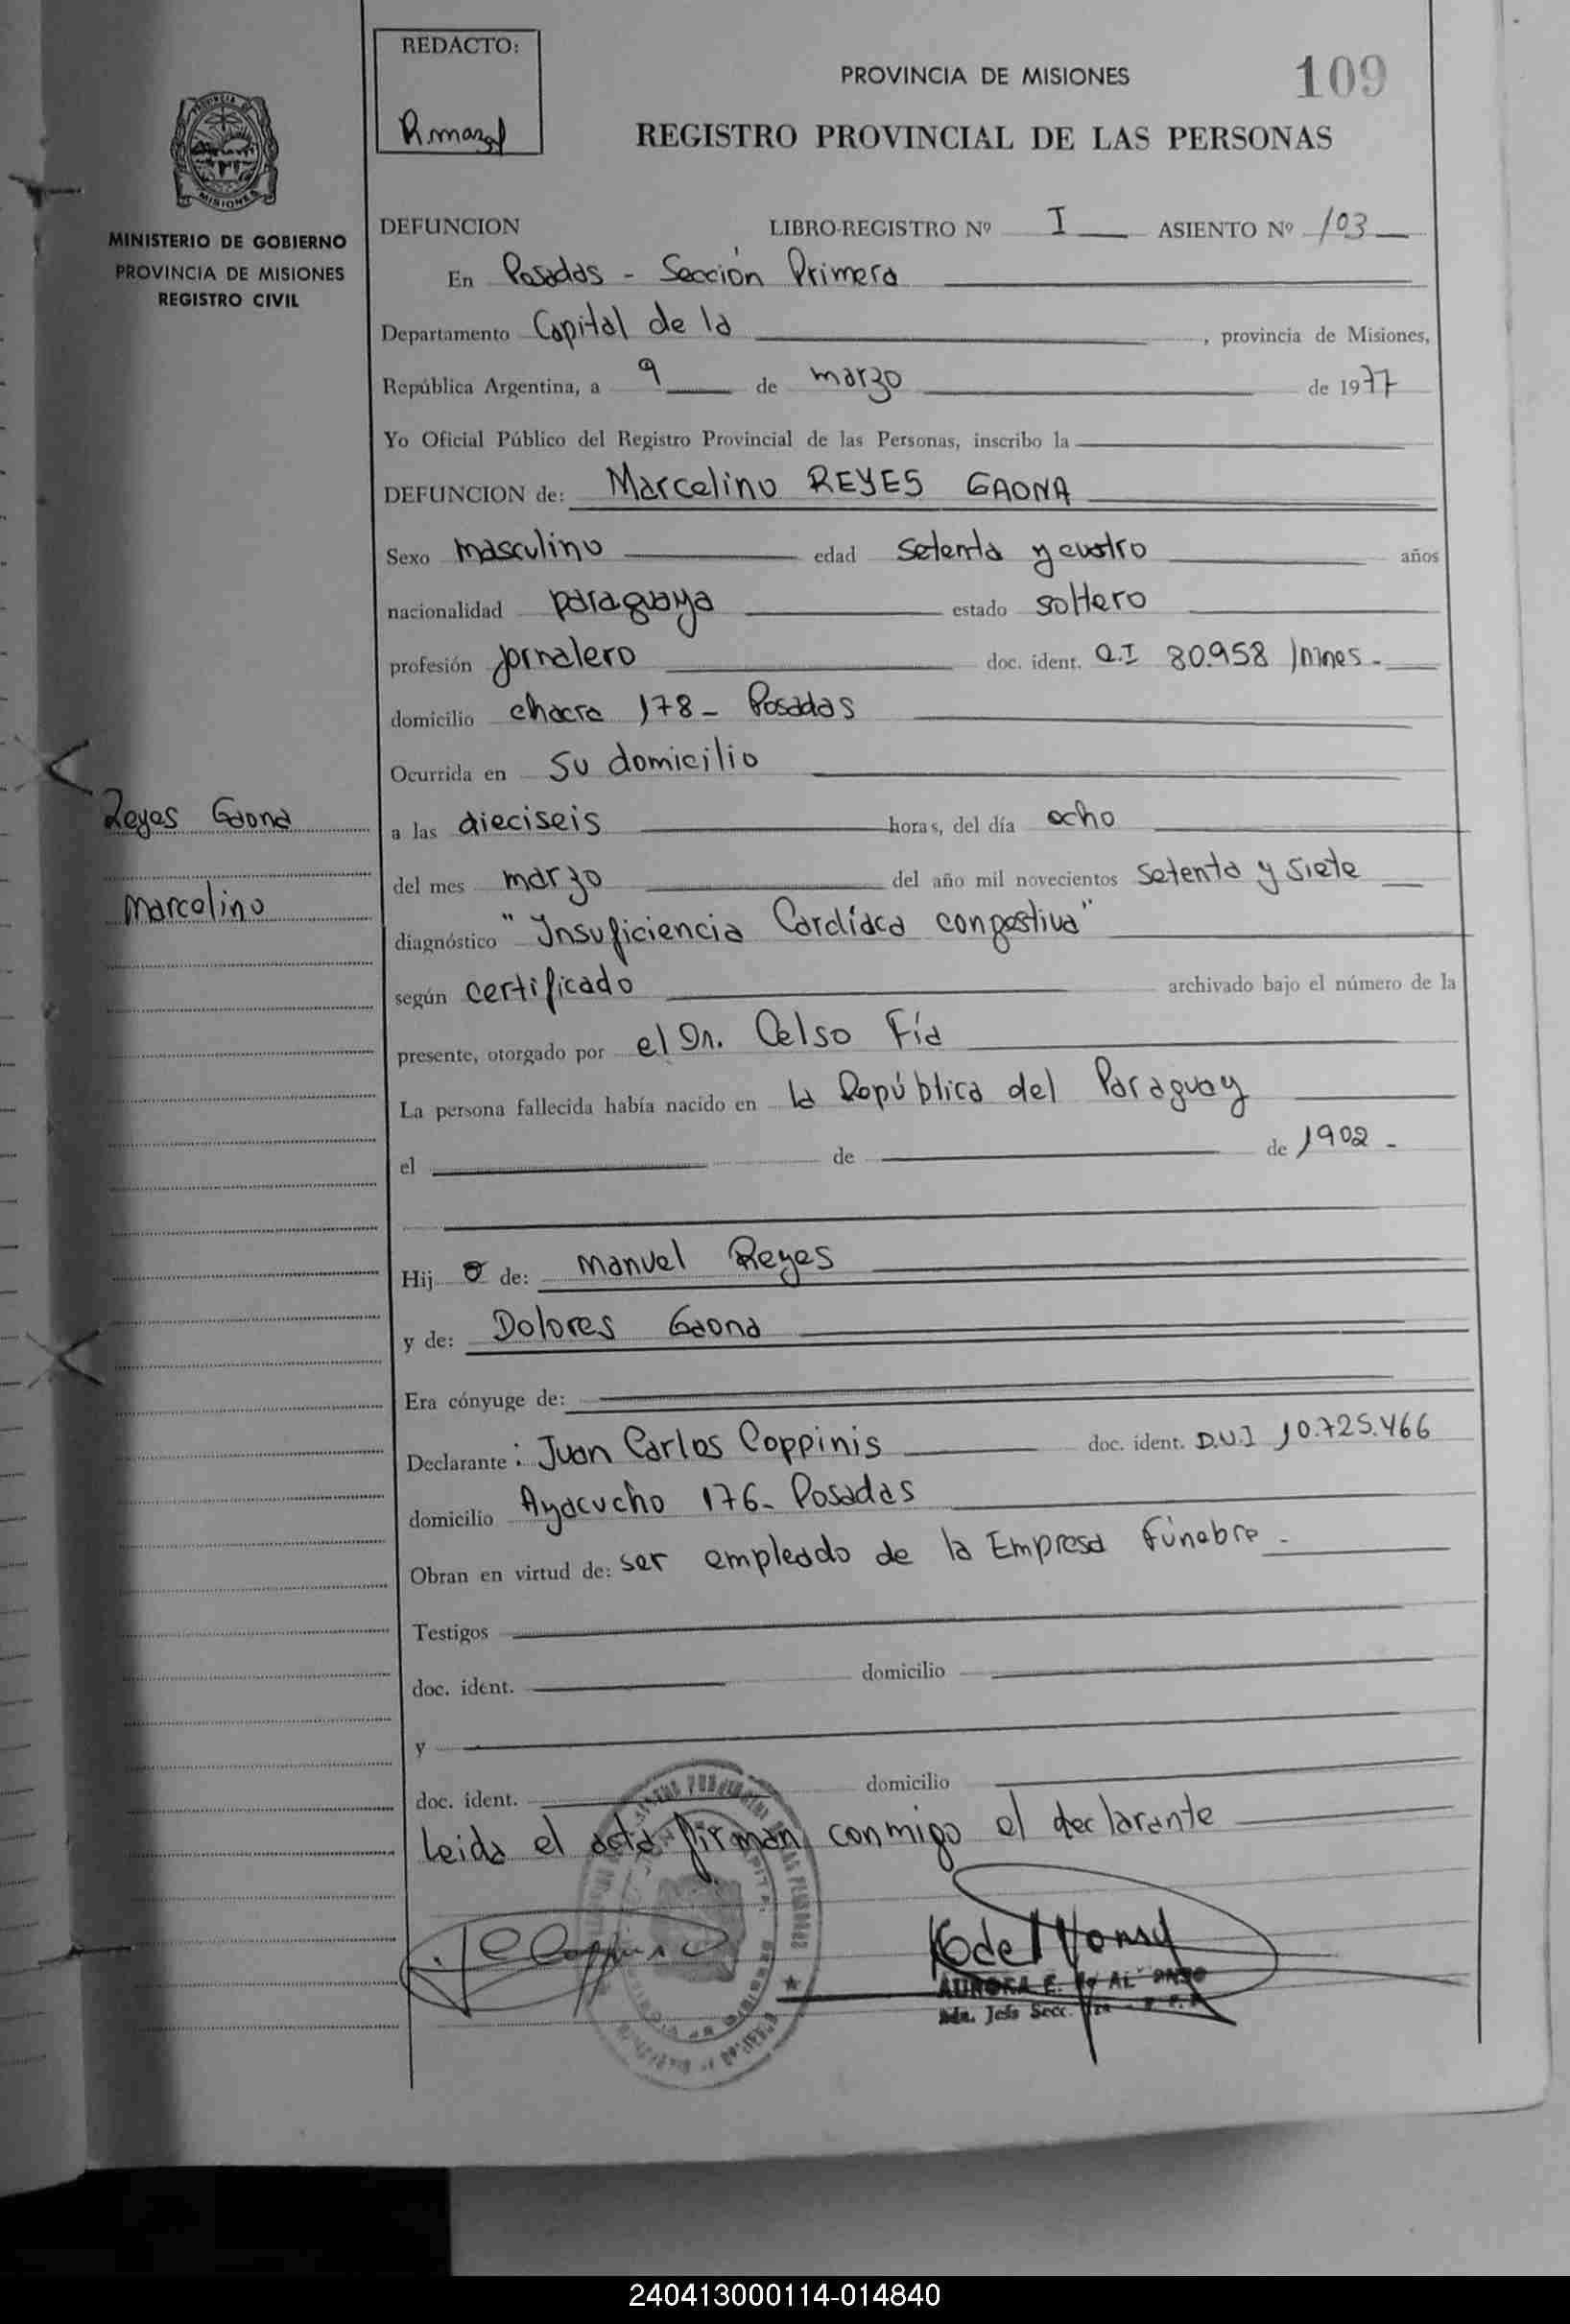 REDACTO:
PROVINCIA DE MISIONES
109
REGISTRO PROVINCIAL DE LAS PERSONAS
MISIONES
MINISTERIO DE GOBIERNO
PROVINCIA DE MISIONES
REGISTRO CIVIL
DEFUNCION LIBRO-REGISTRO Nº I ASIENTO Nº 103
En Posadas - Sección Primera
Departamento Capital de la , provincia de Misiones,
República Argentina, a 9 de marzo de 1977
Yo Oficial Público del Registro Provincial de las Personas, inscribo la
DEFUNCION de: Marcelino REYES GAONA
Sexo masculino edad setenta y cuatro años
nacionalidad paraguaya estado soltero
profesión jornalero doc. ident. C.I 80.958 /mnes.-
domicilio chacra 178 - Posadas
Ocurrida en su domicilio
Reyes Gaona
Marcelino
a las dieciseis horas, del día ocho
del mes marzo del año mil novecientos setenta y siete
diagnóstico "Insuficiencia Cardíaca congestiva"
según certificado archivado bajo el número de la
presente, otorgado por el Dr. Celso Fía
La persona fallecida había nacido en la República del Paraguay
el de de 1902 -
Hij o de: Manuel Reyes
y de: Dolores Gaona
Era cónyuge de:
Declarante: Juan Carlos Coppinis doc. ident. D.U.I 10.725.466
domicilio Ayacucho 176 - Posadas
Obran en virtud de: ser empleado de la Empresa Fúnebre -
Testigos
doc. ident. domicilio
y
doc. ident. domicilio
Leida el acta firman conmigo el declarante
AURORA E.
Secc.
240413000114-014840